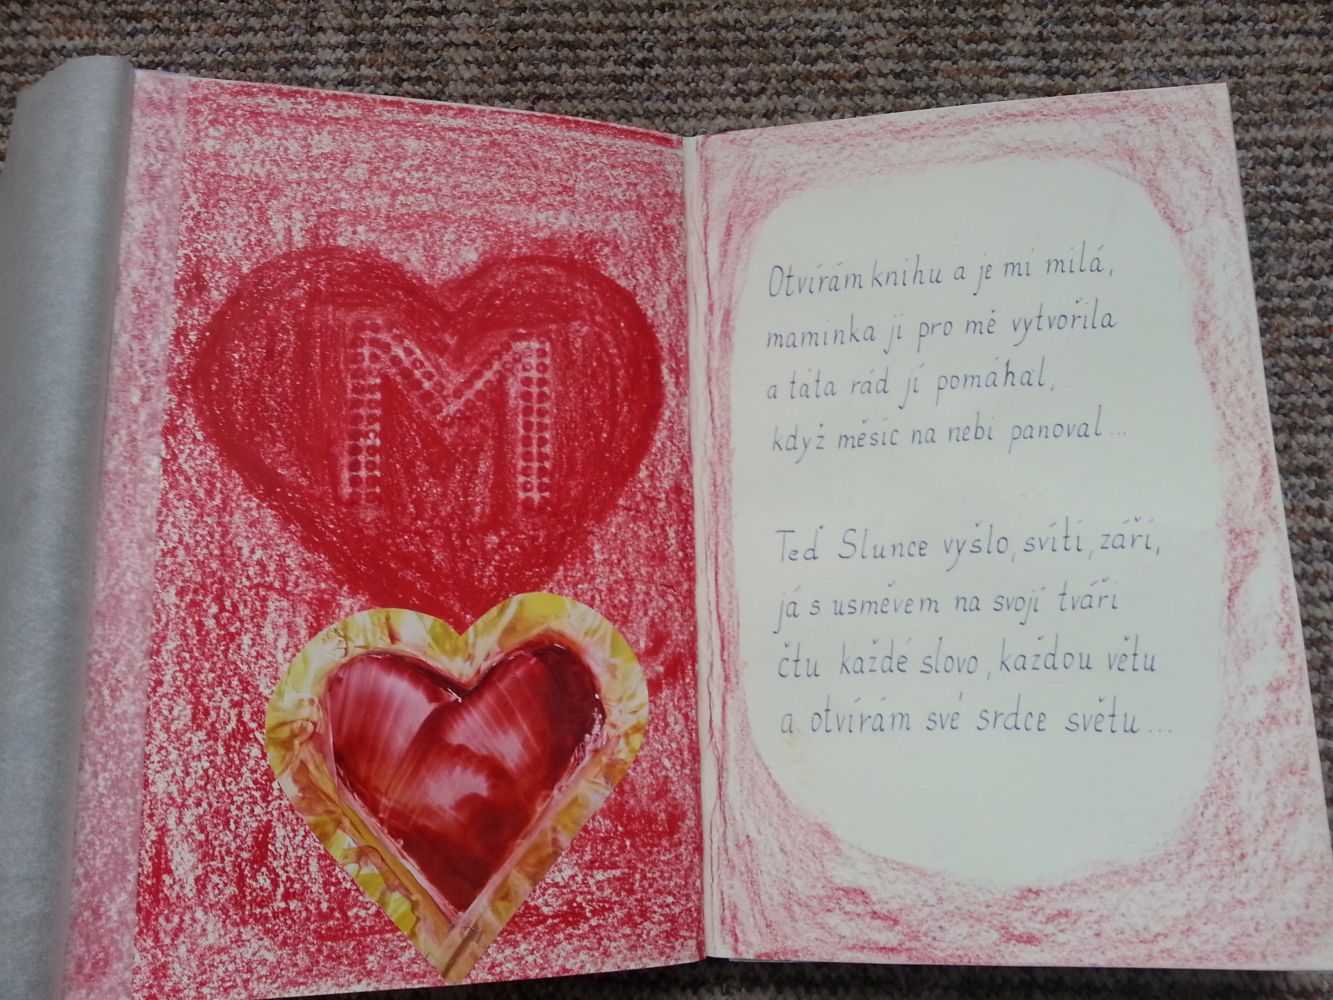 M
Otvírám knihu a je mi milá,
maminka ji pro mě vytvořila
a táta rád jí pomáhal,
když měsíc na nebi panoval...
Teď Slunce vyšlo, svítí, září,
já s usměvem na svojí tváři
čtu každé slovo, každou větu
a otvírám své srdce světu...